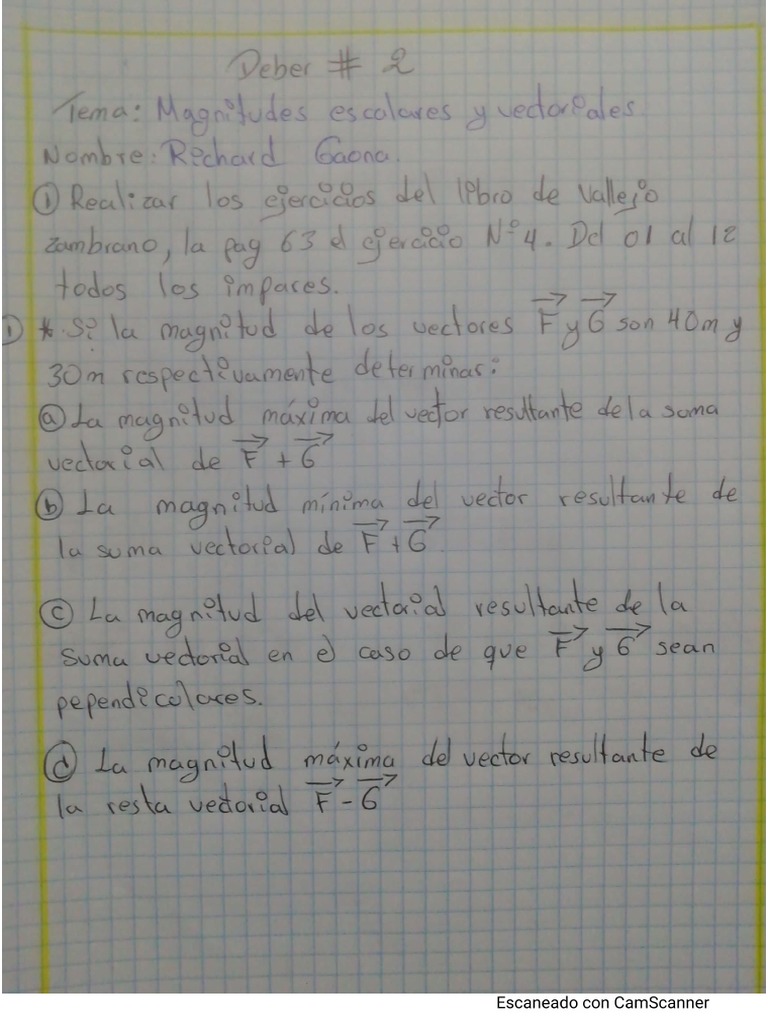 Deber # 2
Tema: Magnitudes escalares y vectoriales
Nombre: Richard Gaona.
① Realizar los ejercicios del libro de Vallejo
zambrano, la pag 63 el ejercicio N°4. Del 01 al 12
todos los impares.
① * Si la magnitud de los vectores F y G son 40m y
30m respectivamente determinar:
ⓐ La magnitud máxima del vector resultante de la suma
vectorial de F + G
ⓑ La magnitud mínima del vector resultante de
la suma vectorial de F + G
ⓒ La magnitud del vectorial resultante de la
suma vectorial en el caso de que F y G sean
pependicolares.
ⓓ La magnitud máxima del vector resultante de
la resta vectorial F - G
Escaneado con CamScanner